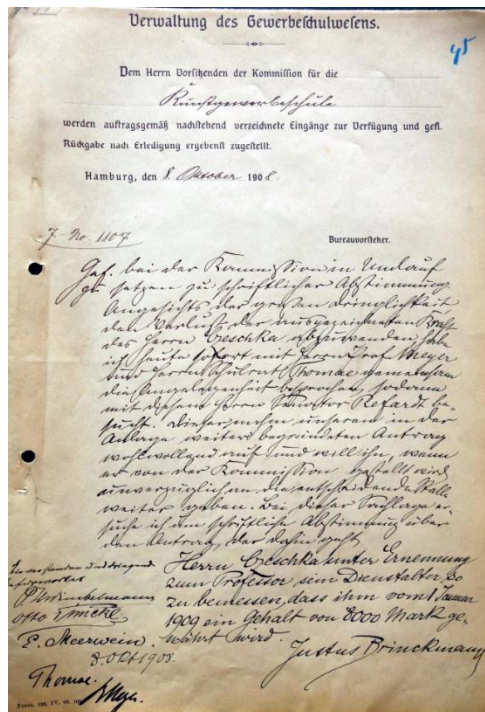 Verwaltung des Gewerbeschulwesens.
45
Dem Herrn Vorsitzenden der Kommission für die
Kunstgewerbeschule
werden auftragsgemäß nachstehend verzeichnete Eingänge zur Verfügung und gefl.
Rückgabe nach Erledigung ergebenst zugestellt.
Hamburg, den 8. Oktober 1908.
J. No. 1107
Bureauvorsteher.
Gef. bei der Kommission in Umlauf
zu setzen zu schriftlicher Abstimmung.
Angesichts der großen Dringlichkeit
den Verlust der ausgezeichneten Kraft
des Herrn Czeschka abzuwenden, habe
ich heute sofort mit Herrn Prof. Meyer
und Herrn Schulrat Thomae gemeinsam
die Angelegenheit besprochen, sodann
mit diesem Herrn Senator Refardt be-
sucht. Dieser nahm unseren in der
Anlage weiter begründeten Antrag
wohlwollend auf und will ihn, wenn
er von der Kommission gestellt wird
unverzüglich an die entscheidende Stelle
weiter geben. Bei dieser Sachlage er-
suche ich um schriftliche Abstimmung über
den Antrag, der dahin geht
Herrn Czeschka unter Ernennung
zum Professor sein Dienstalter so
zu bemessen, dass ihm vom 1 Januar
1909 ein Gehalt von 8000 Mark ge-
währt wird.
Justus Brinckmann
Einverstanden und dringend
befürwortet
Winckelmann
Otto
E. Meerwein.
8 Okt 1908.
Thomae.
Meyer.